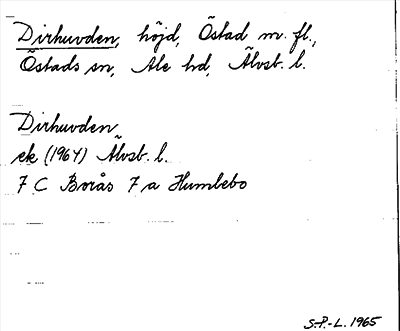 Dirhuvden, höjd, Östad m. fl.,
Östads sn, Ale hd, Älvsb. l.
Dirhuvden
ek (1964) Älvsb. l.
7 C Borås 7 a Humlebo
S.-P.-L. 1965